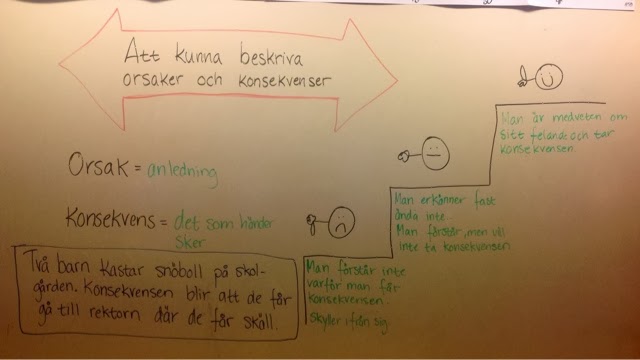 Att kunna beskriva
orsaker och konsekvenser
Orsak = anledning
Konsekvens = det som händer
sker
Två barn kastar snöboll på skol-
gården. Konsekvensen blir att de får
gå till rektorn där de får skäll.
Man förstår inte
varför man får
konsekvensen.
Skyller ifrån sig.
Man erkänner fast
ända inte..
Man förstår, men vill
inte ta konsekvensen
Man är medveten om
sitt felande och tar
konsekvensen.